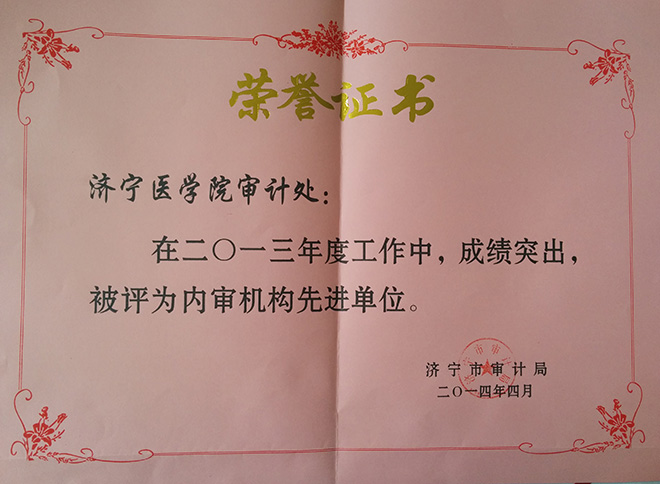 荣誉证书
济宁医学院审计处：
在二〇一三年度工作中，成绩突出，
被评为内审机构先进单位。
济宁市审计局
二〇一四年四月
济宁市审计局